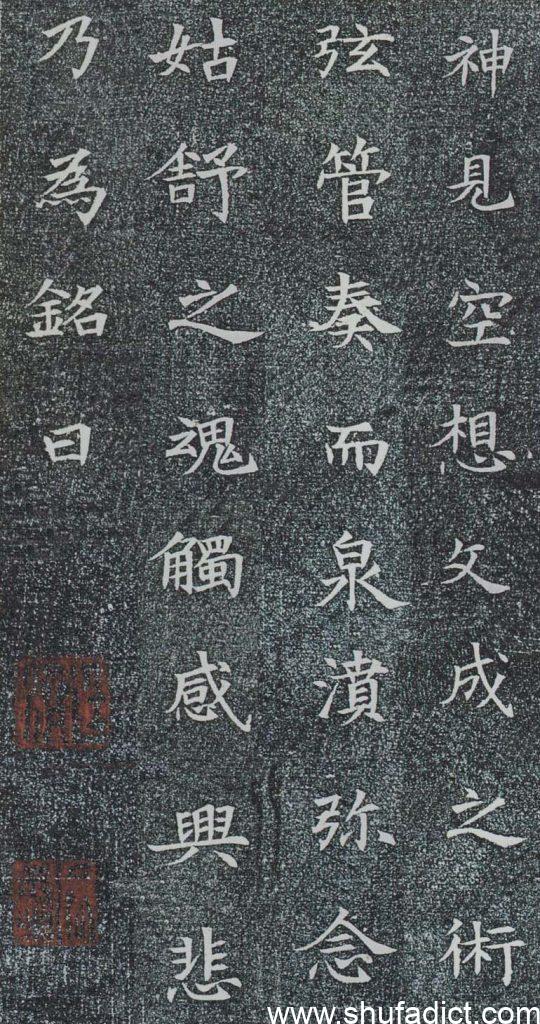 神見空想文成之術
弦管奏而泉濆弥念
姑舒之魂觸感興悲
乃為銘曰
www.shufadict.com